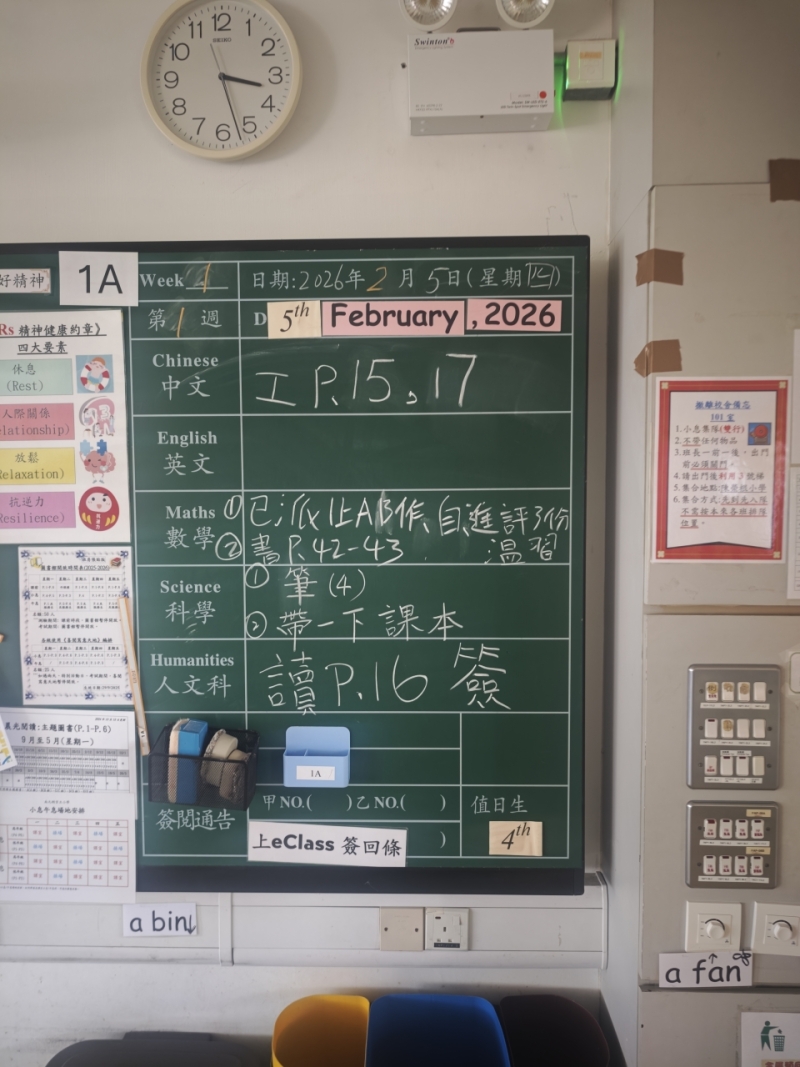 12
11
1
10
2
9
3
8
4
7
5
6
SEIKO
Swinton
好精神
1A
Week 1
日期:2026年2月5日(星期四)
第1週
D 5th February , 2026
Chinese
中文
工 P.15, 17
English
英文
Maths
數學
① 已派上AB作、自進評3份
② 書P.42-43 溫習
Science
科學
① 筆(4)
② 帶一下課本
Humanities
人文科
讀P.16 簽
1A
甲NO.( )乙NO.( )
簽閱通告
上eClass 簽回條
)
值日生
4th
Rs 精神健康約章》
四大要素
休息
(Rest)
人際關係
elationship)
放鬆
Relaxation)
抗逆力
Resilience)
晨光閱讀:主題圖書(P.1-P.6)
9月至5月(星期一)
小息午息場地安排
撤離校舍備忘
101室
1. 小息集隊(雙行)
2. 不帶任何物品
3. 班長一前一後，出門
前必須關門。
a bin
a fan